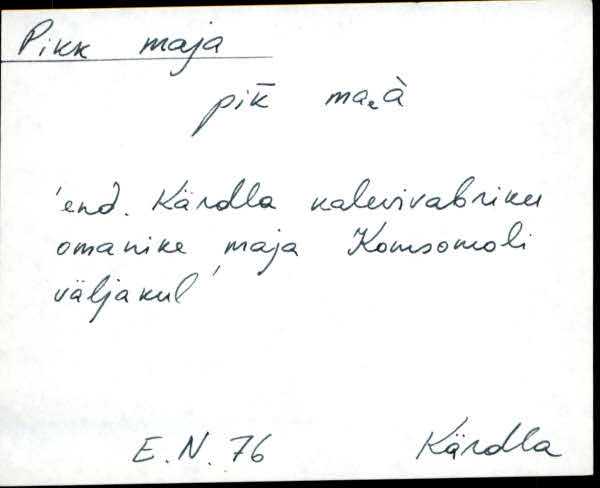 Pikk maja
pik̄ maₑà
'end. Kärdla kalevivabriku
omanike maja Komsomoli
väljakul'
E.N. 76 Kärdla